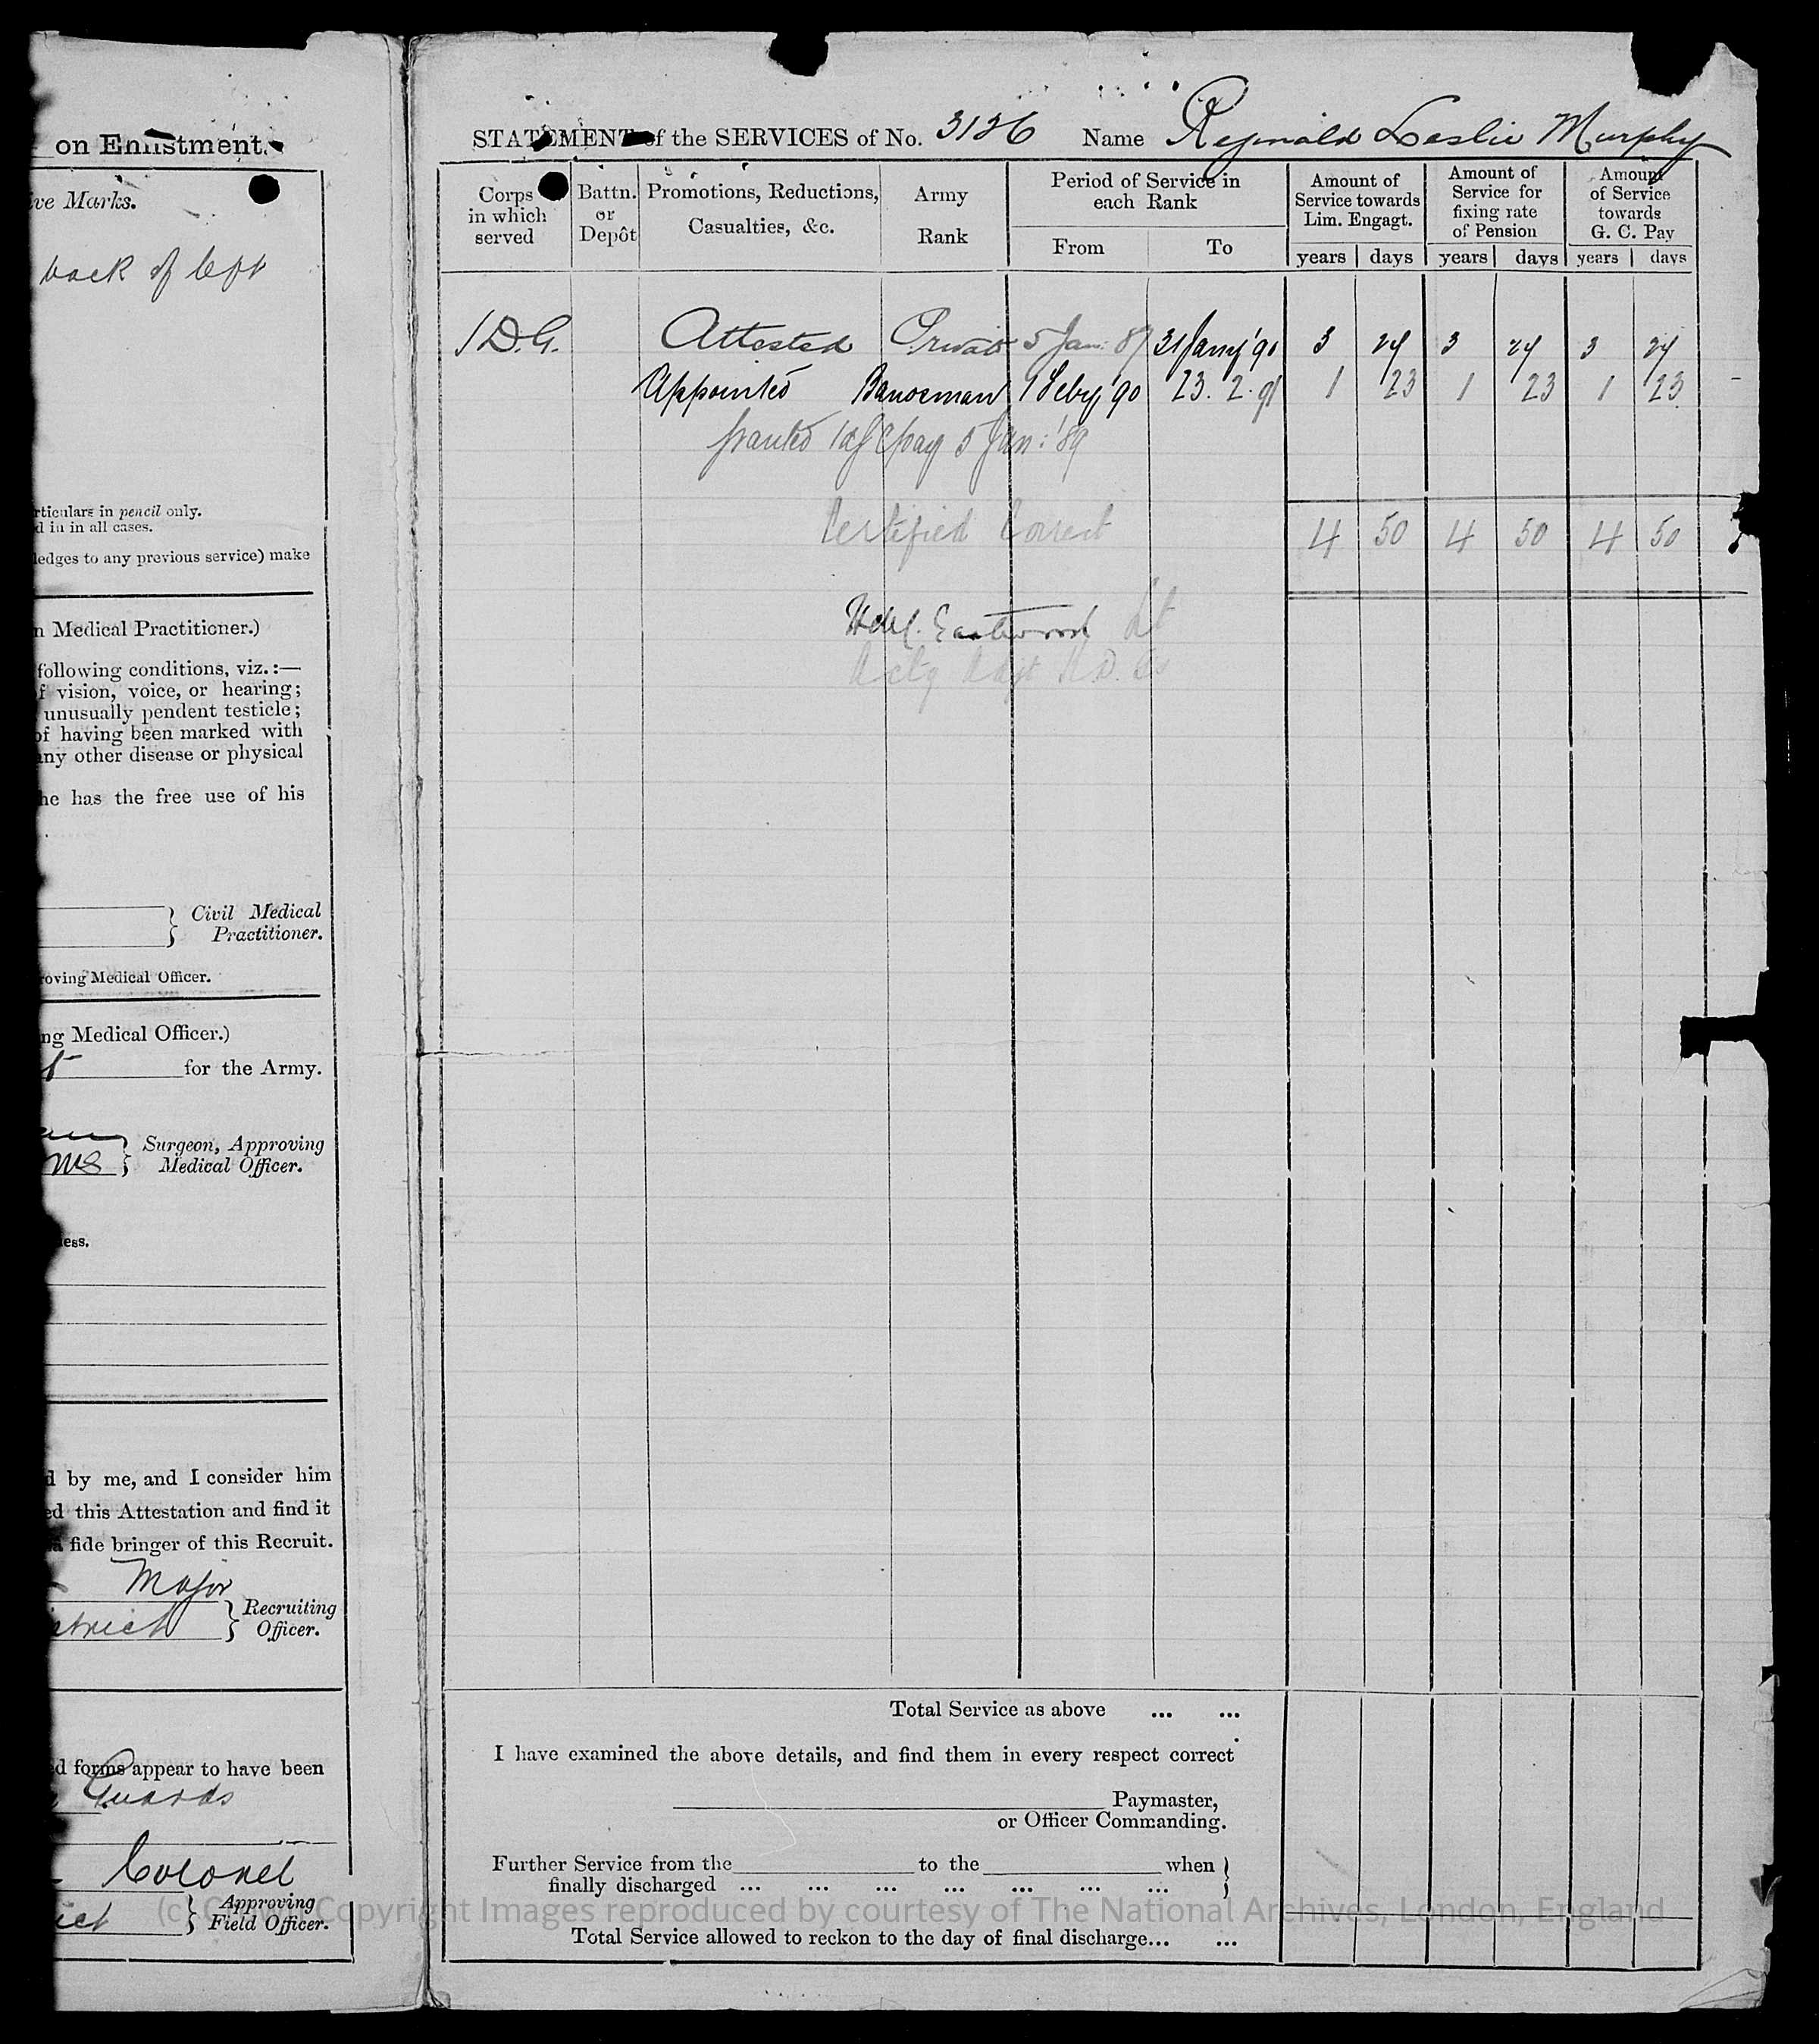 on Enlistment.
ive Marks.
back of left
rticulars in pencil only.
d in in all cases.
ledges to any previous service) make
n Medical Practitioner.)
following conditions, viz.:—
f vision, voice, or hearing;
unusually pendent testicle;
of having been marked with
any other disease or physical
he has the free use of his
Civil Medical
Practitioner.
roving Medical Officer.
ng Medical Officer.)
for the Army.
Surgeon, Approving
Medical Officer.
ess.
d by me, and I consider him
ed this Attestation and find it
a fide bringer of this Recruit.
Major
istrict
Recruiting
Officer.
ed forms appear to have been
Guards
Colonel
Approving
ict
Field Officer.
STATEMENT of the SERVICES of No. 3126 Name Reginald Leslie Murphy
Corps in which served
Battn. or Depôt
Promotions, Reductions, Casualties, &c.
Army Rank
Period of Service in each Rank
From To
Amount of Service towards Lim. Engagt.
Amount of Service for fixing rate of Pension
Amount of Service towards G. C. Pay
years days years days years days
1 D.G. Attested Private 5 Jan: 87 31 Jany '90 3 24 3 24 3 24
Appointed Bandsman 1 Feby '90 23. 2. 91 1 23 1 23 1 23
Granted 1d G C pay 5 Jan: '89
Certified Correct 4 50 4 50 4 50
Eastwood Lt
Actg Adjt K.D. Gs
Total Service as above ... ...
I have examined the above details, and find them in every respect correct
Paymaster,
or Officer Commanding.
Further Service from the to the when
finally discharged ... ... ... ... ... ... ...
(c) Crown Copyright Images reproduced by courtesy of The National Archives, London, England
Total Service allowed to reckon to the day of final discharge... ...